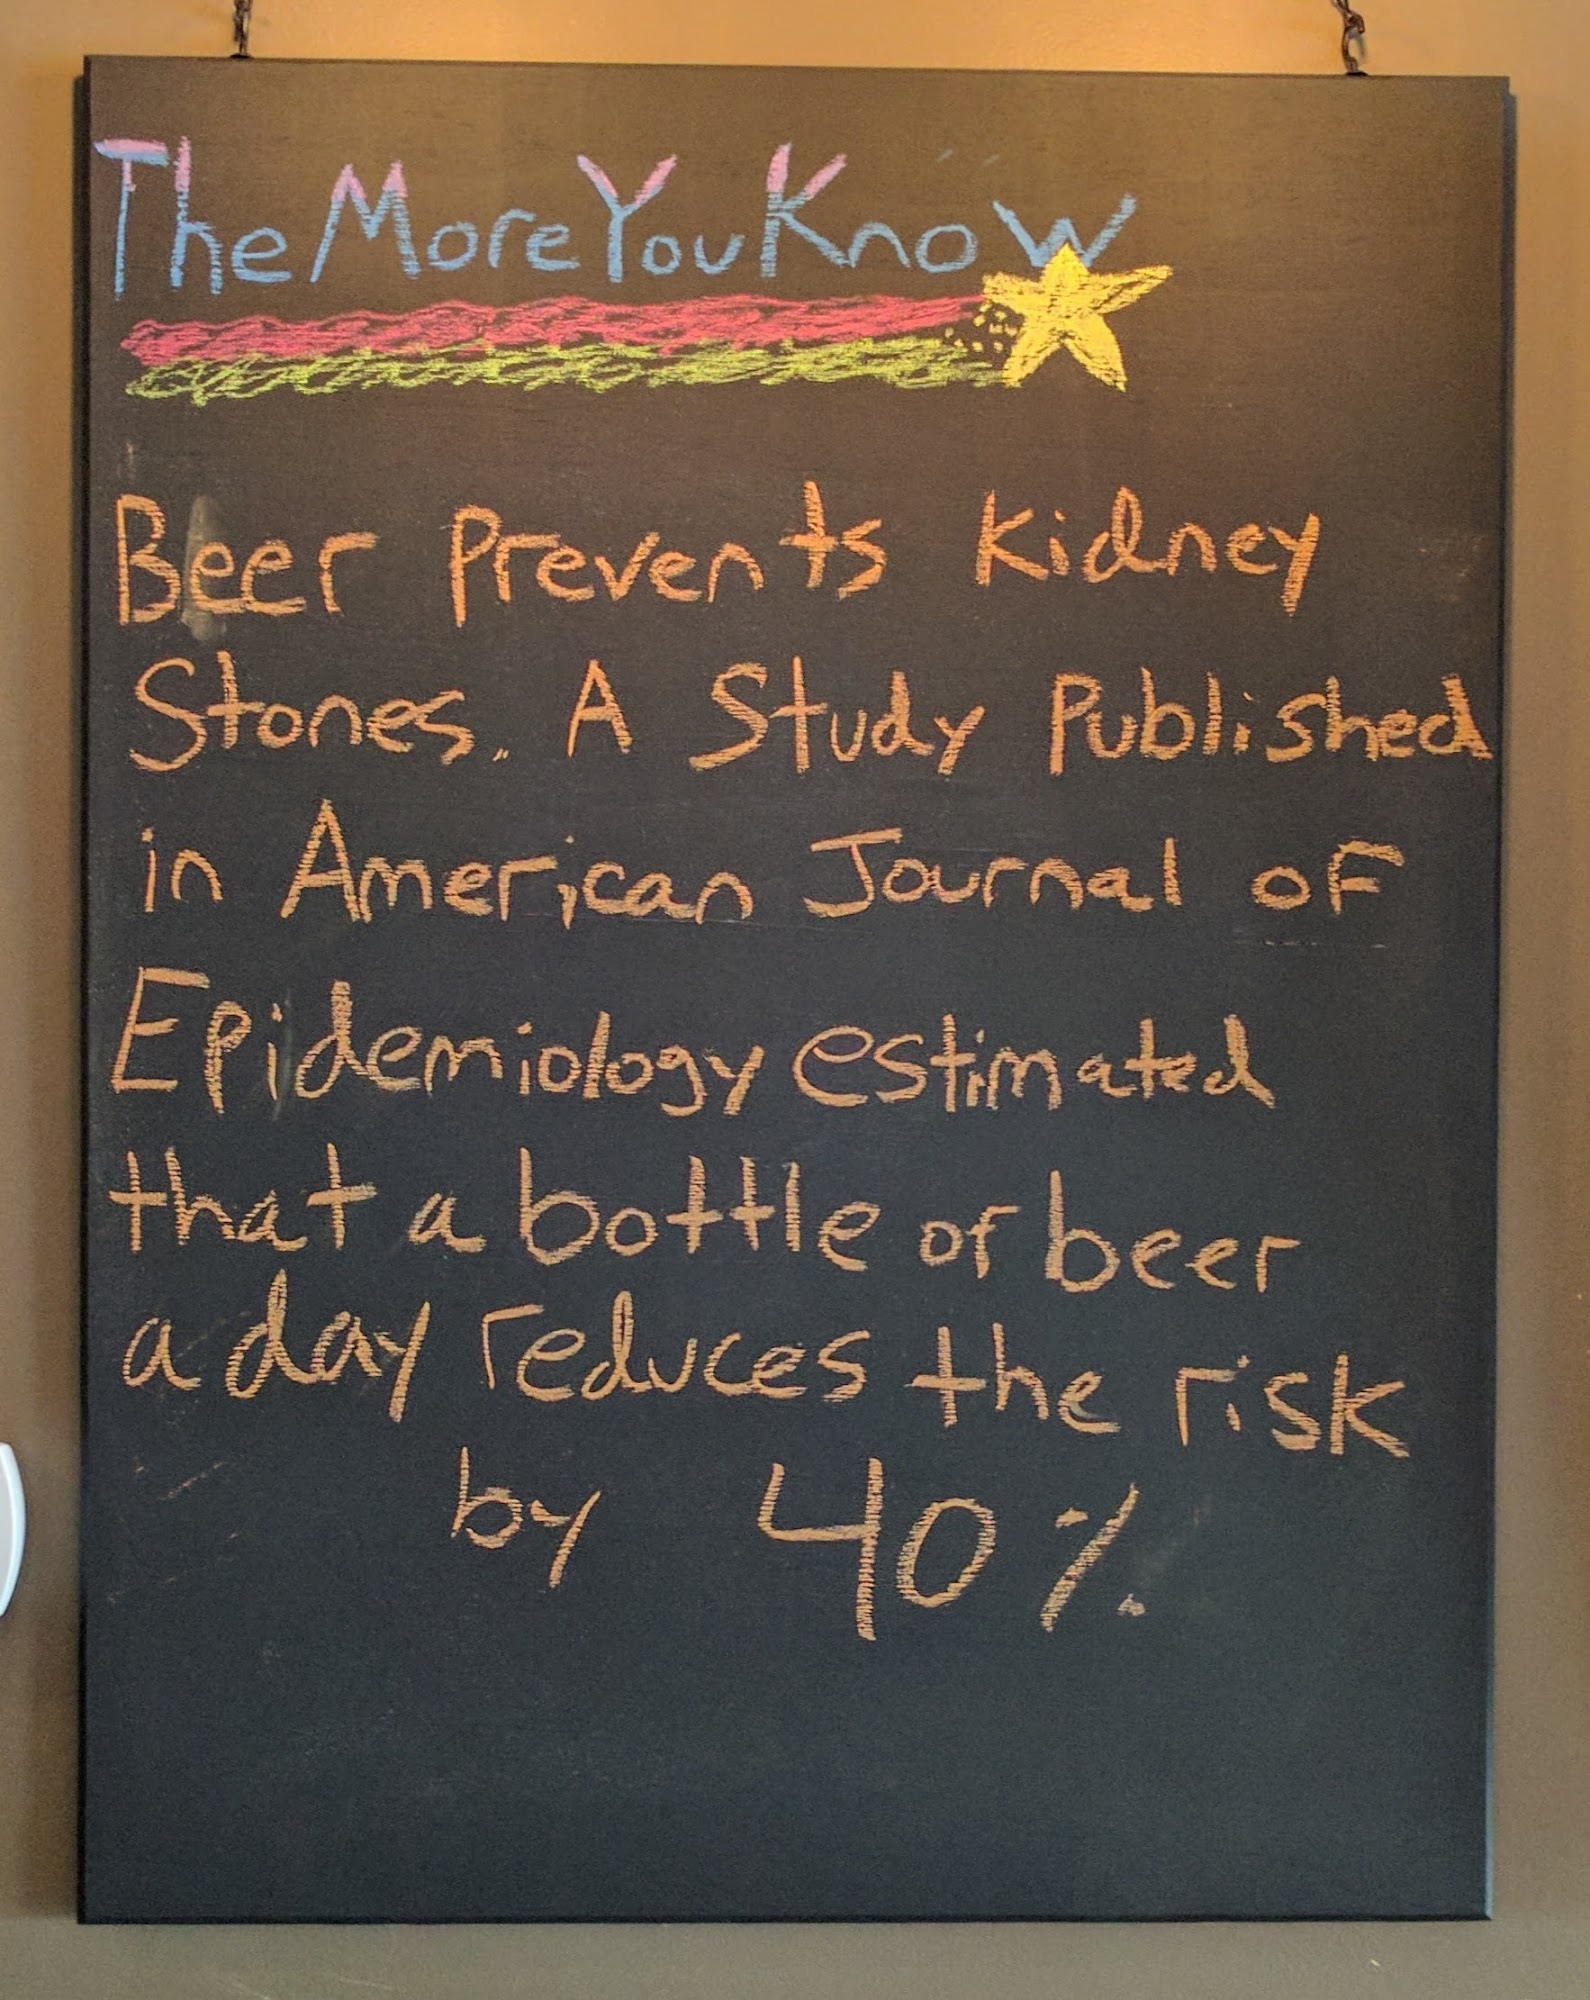 The More You Know
Beer Prevents Kidney
Stones. A Study Published
in American Journal of
Epidemiology estimated
that a bottle of beer
a day reduces the risk
by 40%